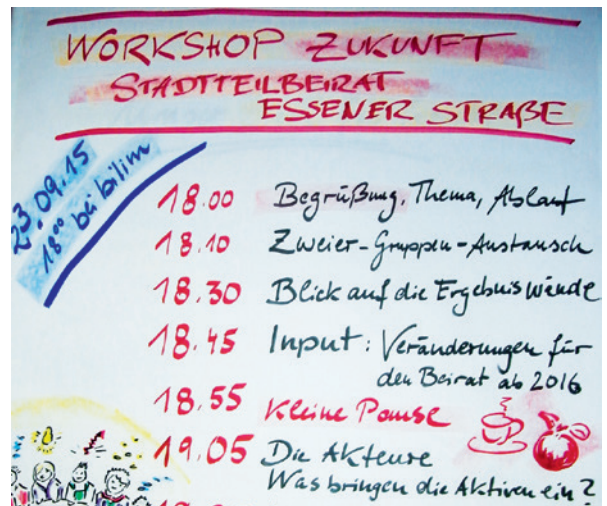 WORKSHOP ZUKUNFT
STADTTEILBEIRAT
ESSENER STRAßE
23.09.15
18⁰⁰ bei bilim
18.00 Begrüßung, Thema, Ablauf
18.10 Zweier-Gruppen-Austausch
18.30 Blick auf die Ergebniswände
18.45 Input: Veränderungen für
den Beirat ab 2016
18.55 Kleine Pause
19.05 Die Akteure
Was bringen die Aktiven ein?